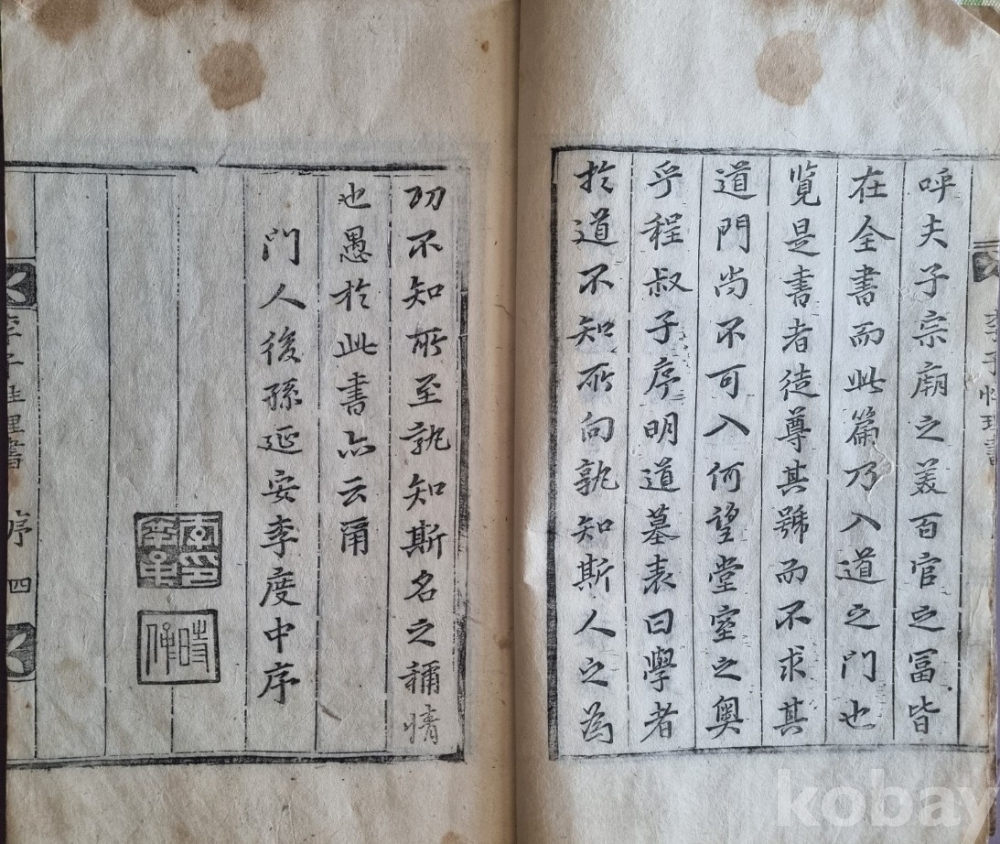 李子性理書
呼夫子宗廟之美百官之冨皆
在全書而此篇乃入道之門也
覽是書者徒尊其號而不求其
道門尚不可入何望堂室之奧
乎程叔子序明道墓表曰學者
於道不知所向孰知斯人之為
功不知所至孰知斯名之稱情
也愚於此書亦云爾
門人後孫延安李度中序
李子性理書 序 四
kobay